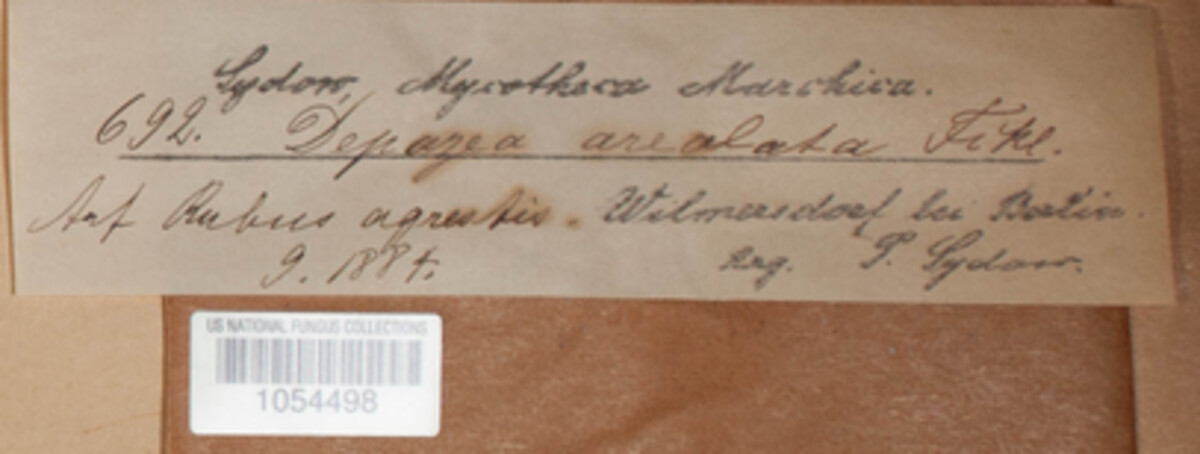 Sydow, Mycotheca Marchica.
692. Depazea areolata Fckl.
Auf Rubus agrestis. Wilmersdorf bei Berlin.
9. 1884. leg. P. Sydow.
US NATIONAL FUNGUS COLLECTIONS
1054498